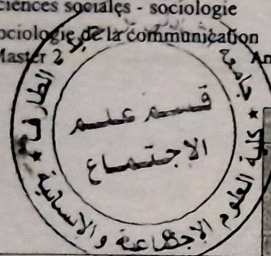 sciences sociales - sociologie
sociologie de la communication
Master 2 An
جامعة الطارف
قسم علم
الاجتماع
كلية العلوم الاجتماعية والإنسانية